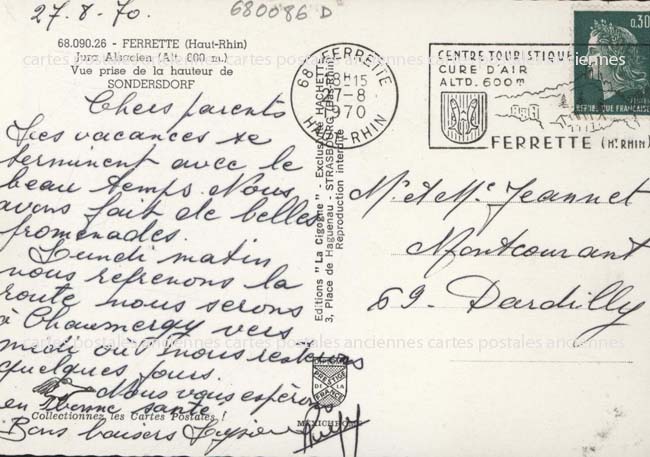 27.8.70.
680086 D
68.090.26 - FERRETTE (Haut-Rhin)
Jura Alsacien (Alt. 600 m.)
Vue prise de la hauteur de
SONDERSDORF
Chers parents
Les vacances se
terminent avec le
beau temps. Nous
avons fait de belles
promenades.
Lundi matin
nous reprenons la
route nous serons
à Chaumergy vers
midi où nous resterons
quelques jours.
Nous vous espérons
en bonne santé
Bons baisers
Collectionnez les Cartes Postales !
Editions "La Cigogne" - Exclusivité HACHETTE
3, Place de Haguenau - STRASBOURG (Bas-Rhin)
Reproduction interdite
CARTES
PRESTIGE
DE LA
FRANCE
MEXICHROME
68 FERRETTE
18H15
27-8
1970
HAUT-RHIN
CENTRE TOURISTIQUE
CURE D'AIR
ALTD. 600m
FERRETTE (Ht RHIN)
0,30
REPUBLIQUE FRANÇAISE
Mr et Me Jeannet
Montcourant
69. Dardilly
cartes postales anciennes cartes postales anciennes cartes postales anciennes
cartes postales anciennes cartes postales anciennes cartes postales anciennes